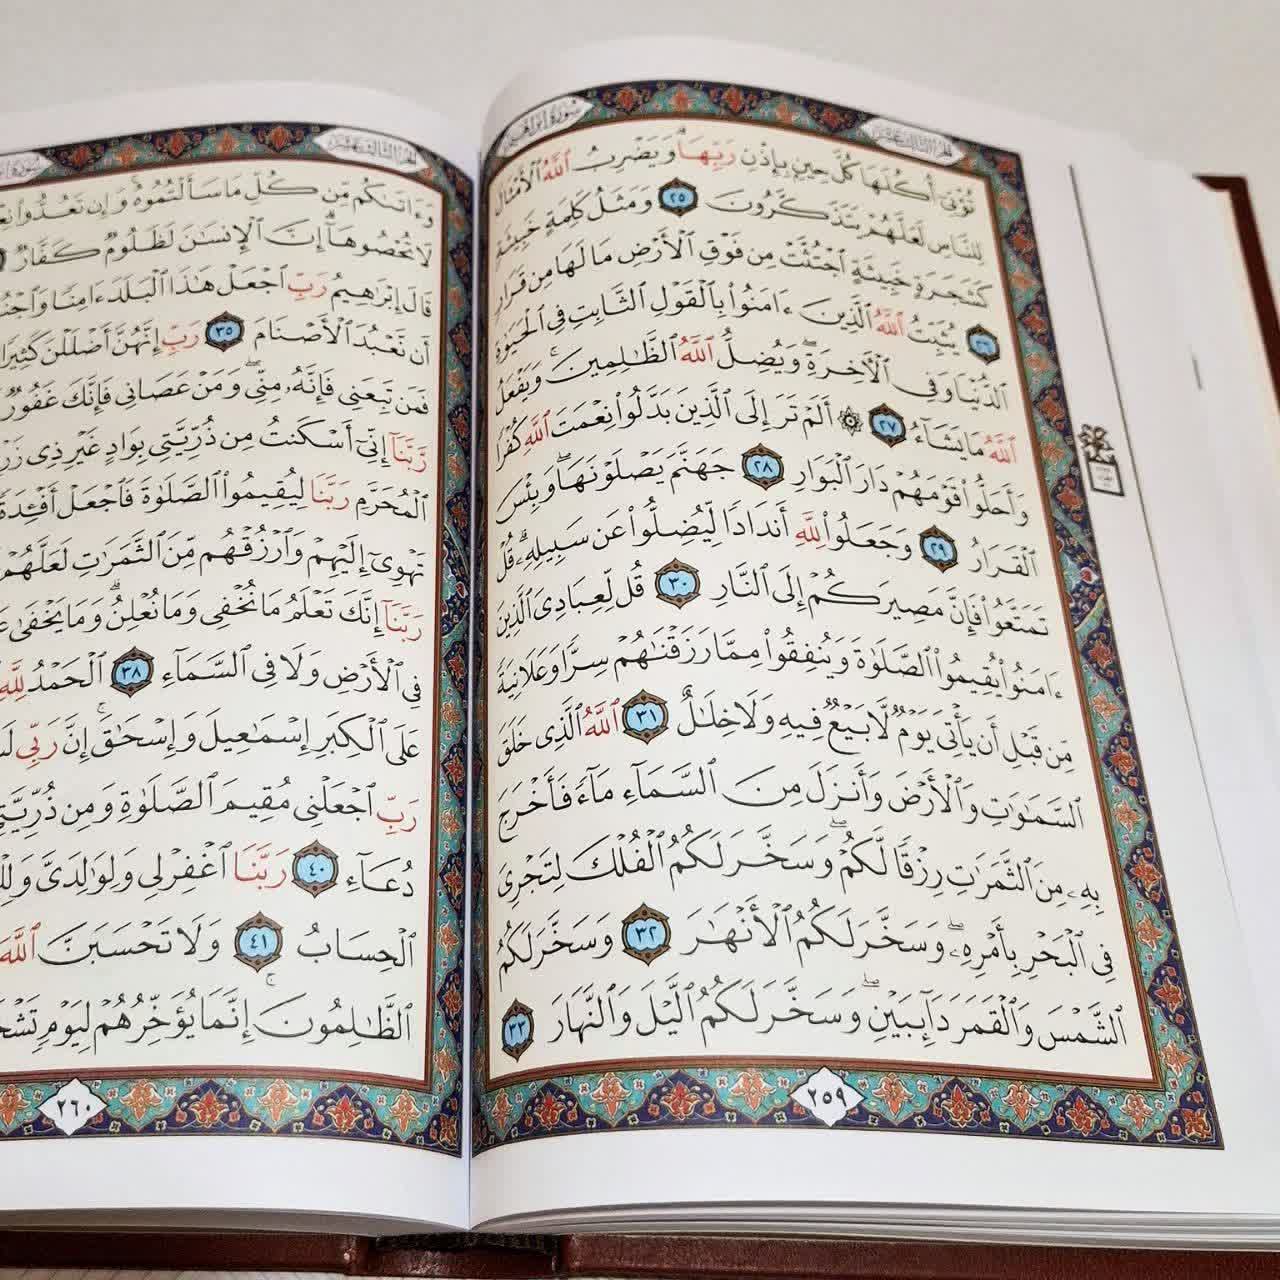 الجزء الثالث عشر
سورة ابراهيم
تُؤْتِىٓ أُكُلَهَا كُلَّ حِينٍۭ بِإِذْنِ رَبِّهَا ۗ وَيَضْرِبُ ٱللَّهُ ٱلْأَمْثَالَ
لِلنَّاسِ لَعَلَّهُمْ يَتَذَكَّرُونَ ٢٥ وَمَثَلُ كَلِمَةٍ خَبِيثَةٍ
كَشَجَرَةٍ خَبِيثَةٍ ٱجْتُثَّتْ مِن فَوْقِ ٱلْأَرْضِ مَا لَهَا مِن قَرَارٍ
٢٦ يُثَبِّتُ ٱللَّهُ ٱلَّذِينَ ءَامَنُوا۟ بِٱلْقَوْلِ ٱلثَّابِتِ فِى ٱلْحَيَوٰةِ
ٱلدُّنْيَا وَفِى ٱلْءَاخِرَةِ ۖ وَيُضِلُّ ٱللَّهُ ٱلظَّٰلِمِينَ ۚ وَيَفْعَلُ
ٱللَّهُ مَا يَشَآءُ ٢٧ ۞ أَلَمْ تَرَ إِلَى ٱلَّذِينَ بَدَّلُوا۟ نِعْمَتَ ٱللَّهِ كُفْرًا
وَأَحَلُّوا۟ قَوْمَهُمْ دَارَ ٱلْبَوَارِ ٢٨ جَهَنَّمَ يَصْلَوْنَهَا ۖ وَبِئْسَ
ٱلْقَرَارُ ٢٩ وَجَعَلُوا۟ لِلَّهِ أَندَادًا لِّيُضِلُّوا۟ عَن سَبِيلِهِۦ ۗ قُلْ
تَمَتَّعُوا۟ فَإِنَّ مَصِيرَكُمْ إِلَى ٱلنَّارِ ٣٠ قُل لِّعِبَادِىَ ٱلَّذِينَ
ءَامَنُوا۟ يُقِيمُوا۟ ٱلصَّلَوٰةَ وَيُنفِقُوا۟ مِمَّا رَزَقْنَٰهُمْ سِرًّا وَعَلَانِيَةً
مِّن قَبْلِ أَن يَأْتِىَ يَوْمٌ لَّا بَيْعٌ فِيهِ وَلَا خِلَٰلٌ ٣١ ٱللَّهُ ٱلَّذِى خَلَقَ
ٱلسَّمَٰوَٰتِ وَٱلْأَرْضَ وَأَنزَلَ مِنَ ٱلسَّمَآءِ مَآءً فَأَخْرَجَ
بِهِۦ مِنَ ٱلثَّمَرَٰتِ رِزْقًا لَّكُمْ ۖ وَسَخَّرَ لَكُمُ ٱلْفُلْكَ لِتَجْرِىَ
فِى ٱلْبَحْرِ بِأَمْرِهِۦ ۖ وَسَخَّرَ لَكُمُ ٱلْأَنْهَٰرَ ٣٢ وَسَخَّرَ لَكُمُ
ٱلشَّمْسَ وَٱلْقَمَرَ دَآئِبَيْنِ ۖ وَسَخَّرَ لَكُمُ ٱلَّيْلَ وَٱلنَّهَارَ ٣٣
٢٥٩
الجزء الثالث عشر
سورة
وَءَاتَىٰكُم مِّن كُلِّ مَا سَأَلْتُمُوهُ ۚ وَإِن تَعُدُّوا۟
لَا تُحْصُوهَآ ۗ إِنَّ ٱلْإِنسَٰنَ لَظَلُومٌ كَفَّارٌ
قَالَ إِبْرَٰهِيمُ رَبِّ ٱجْعَلْ هَٰذَا ٱلْبَلَدَ ءَامِنًا
أَن نَّعْبُدَ ٱلْأَصْنَامَ ٣٥ رَبِّ إِنَّهُنَّ أَضْلَلْنَ كَثِيرًا
فَمَن تَبِعَنِى فَإِنَّهُۥ مِنِّى ۖ وَمَنْ عَصَانِى فَإِنَّكَ غَفُورٌ
رَّبَّنَآ إِنِّىٓ أَسْكَنتُ مِن ذُرِّيَّتِى بِوَادٍ غَيْرِ ذِى
ٱلْمُحَرَّمِ رَبَّنَا لِيُقِيمُوا۟ ٱلصَّلَوٰةَ فَٱجْعَلْ أَفْـِٔدَةً
تَهْوِىٓ إِلَيْهِمْ وَٱرْزُقْهُم مِّنَ ٱلثَّمَرَٰتِ لَعَلَّهُمْ
رَبَّنَآ إِنَّكَ تَعْلَمُ مَا نُخْفِى وَمَا نُعْلِنُ ۗ وَمَا يَخْفَىٰ
فِى ٱلْأَرْضِ وَلَا فِى ٱلسَّمَآءِ ٣٨ ٱلْحَمْدُ لِلَّهِ
عَلَى ٱلْكِبَرِ إِسْمَٰعِيلَ وَإِسْحَٰقَ ۚ إِنَّ رَبِّى
رَبِّ ٱجْعَلْنِى مُقِيمَ ٱلصَّلَوٰةِ وَمِن ذُرِّيَّتِى
دُعَآءِ ٤٠ رَبَّنَا ٱغْفِرْ لِى وَلِوَٰلِدَىَّ
ٱلْحِسَابُ ٤١ وَلَا تَحْسَبَنَّ ٱللَّهَ
ٱلظَّٰلِمُونَ ۚ إِنَّمَا يُؤَخِّرُهُمْ لِيَوْمٍ
٢٦٠